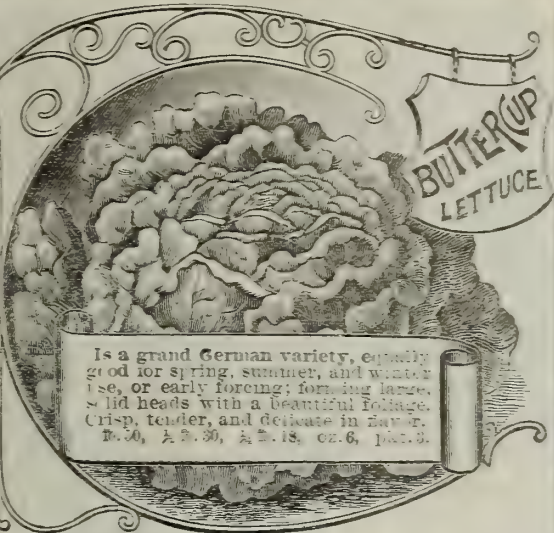 BUTTERCUP
LETTUCE
Is a grand German variety, equally
good for spring, summer, and winter
use, or early forcing; forming large,
solid heads with a beautiful foliage.
Crisp, tender, and delicate in flavor.
oz. 6,